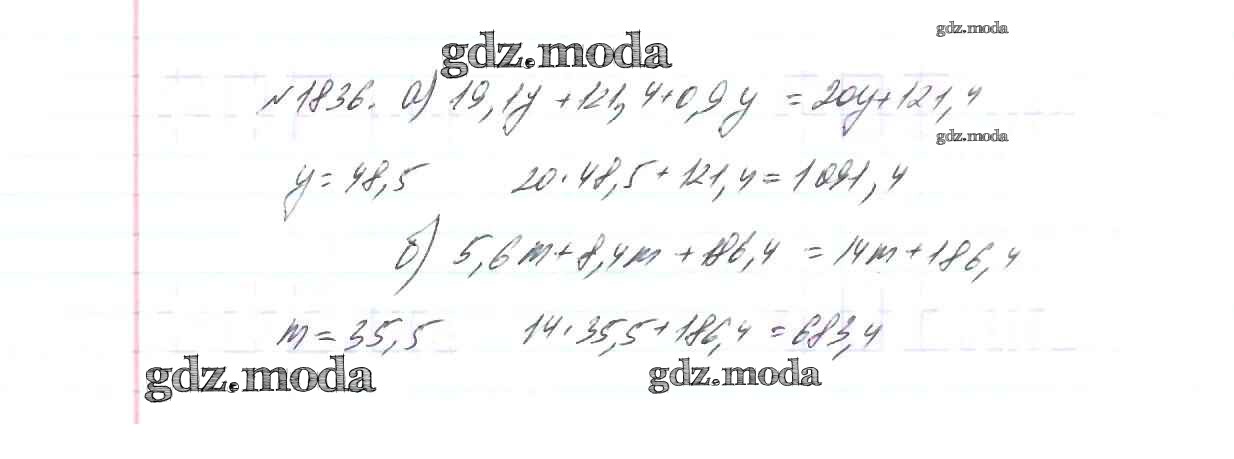 gdz.moda
gdz.moda
№1836. а) 19,1y + 121,4 + 0,9y = 20y + 121,4
gdz.moda
y = 48,5    20 · 48,5 + 121,4 = 1091,4
б) 5,6m + 8,4m + 186,4 = 14m + 186,4
m = 35,5    14 · 35,5 + 186,4 = 683,4
gdz.moda
gdz.moda